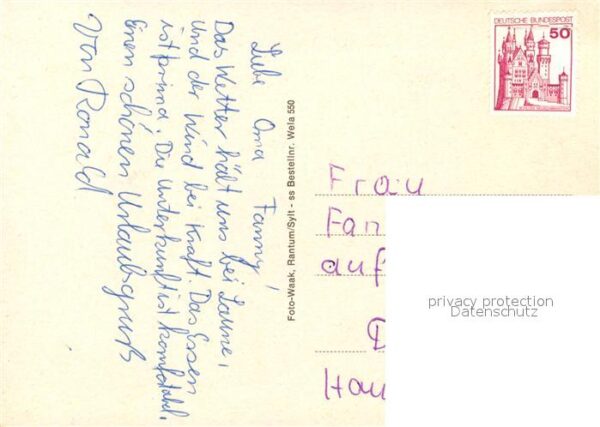 Liebe Oma Fanny!
Das Wetter hält uns bei Laune,
und der Wind bei Kraft. Das Essen
ist prima. Die Unterkunft ist komfortabel.
Einen schönen Urlaubsgruß
Von Ronald
Foto-Waak, Rantum/Sylt - ss Bestellnr. Wela 550
DEUTSCHE BUNDESPOST
50
Frau
Fan
auf
D
Hau
privacy protection
Datenschutz